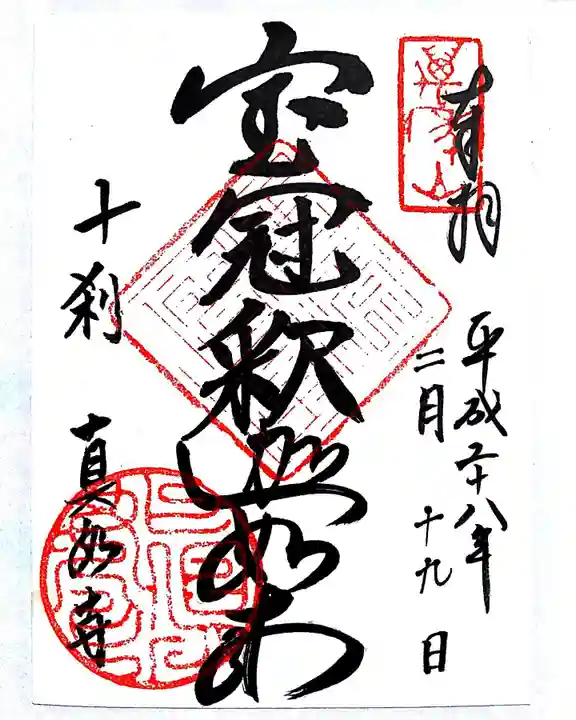 奉拝
平成二十八年
二月 十九日
宝冠釈迦如来
十刹 真如寺